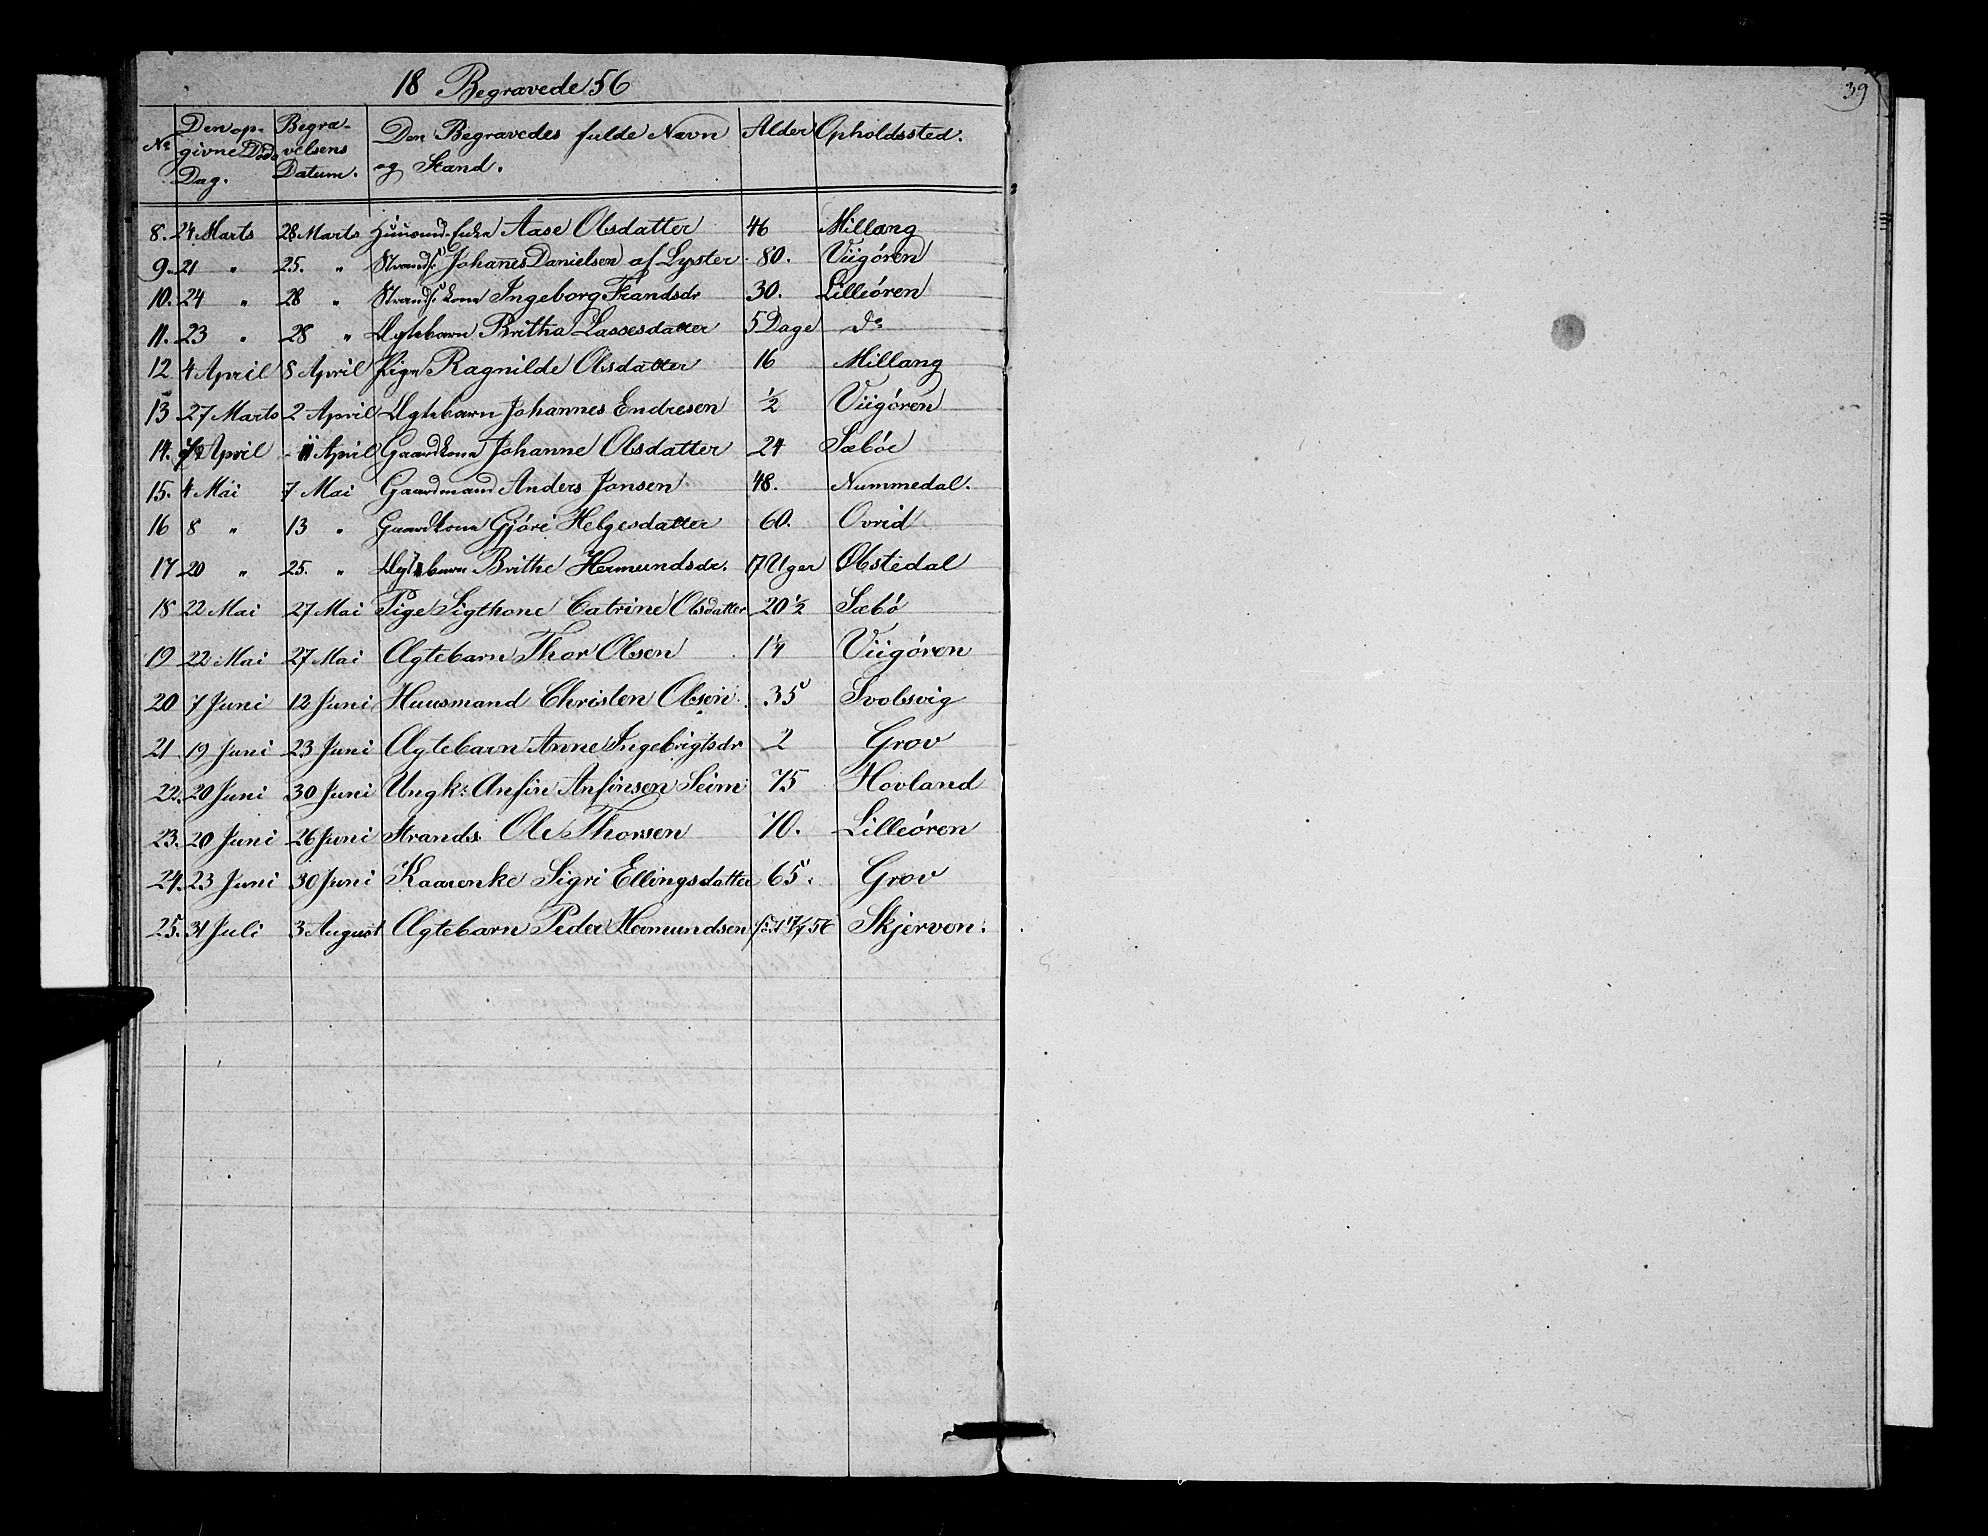 18 Begravede 56
39
No Den op- givne Døds Dag. Begra- velsens Datum. Den Begravedes fulde Navn og Stand. Alder Opholdssted.
8. 24 Marts 28 Marts Huusmd. Enke Aase Olsdatter 46 Millang
9. 21 " 25. " Strands: Johanes Danielsen af Lyster 80. Viigören
10. 24 " 28 " Strands: kone Ingeborg Frandsdr 30. Lilleören
11. 23 " 28 " Ægtebarn Britha Lassesdatter 5 Dage do
12 4 April 8 April Pige Ragnilde Olsdatter 16 Millang
13 27 Marts 2 April Ægtebarn Johannes Endresen ½ Viigören
14. April 11 April Gaardkone Johanne Olsdatter 24 Sæböe
15. 4 Mai 7 Mai Gaardmand Anders Jonsen 48. Nummedal.
16 8 " 13 " Gaardkone Gjöri Helgesdatter 60. Ovrid
17 20 " 25. " Ægtebarn Brithe Hermundsdr. 17 Uger Obstedal
18 22 Mai 27 Mai Pige Sigthone Catrine Olsdatter 20 ½ Sæbö
19 22 Mai 27 Mai Ægtebarn Thor Olsen 1¼ Viigören
20 7 Juni 12 Juni Huusmand Christen Olsen 35 Svolsvig
21 19 Juni 23 Juni Ægtebarn Anne Ingebrigtsdr 2 Grov
22. 20 Juni 30 Juni Ungk: Anfin Anfinsen Seim 75 Hovland
23. 20 Juni 26 Juni Strands Ole Thorsen 70. Lilleören
24. 23 Juni 30 Juni Kaarenke Sigri Ellingsdatter 65. Grov
25. 31 Juli 3 August Ægtebarn Peder Hermundsen föd 17/7 56 Skjerven.